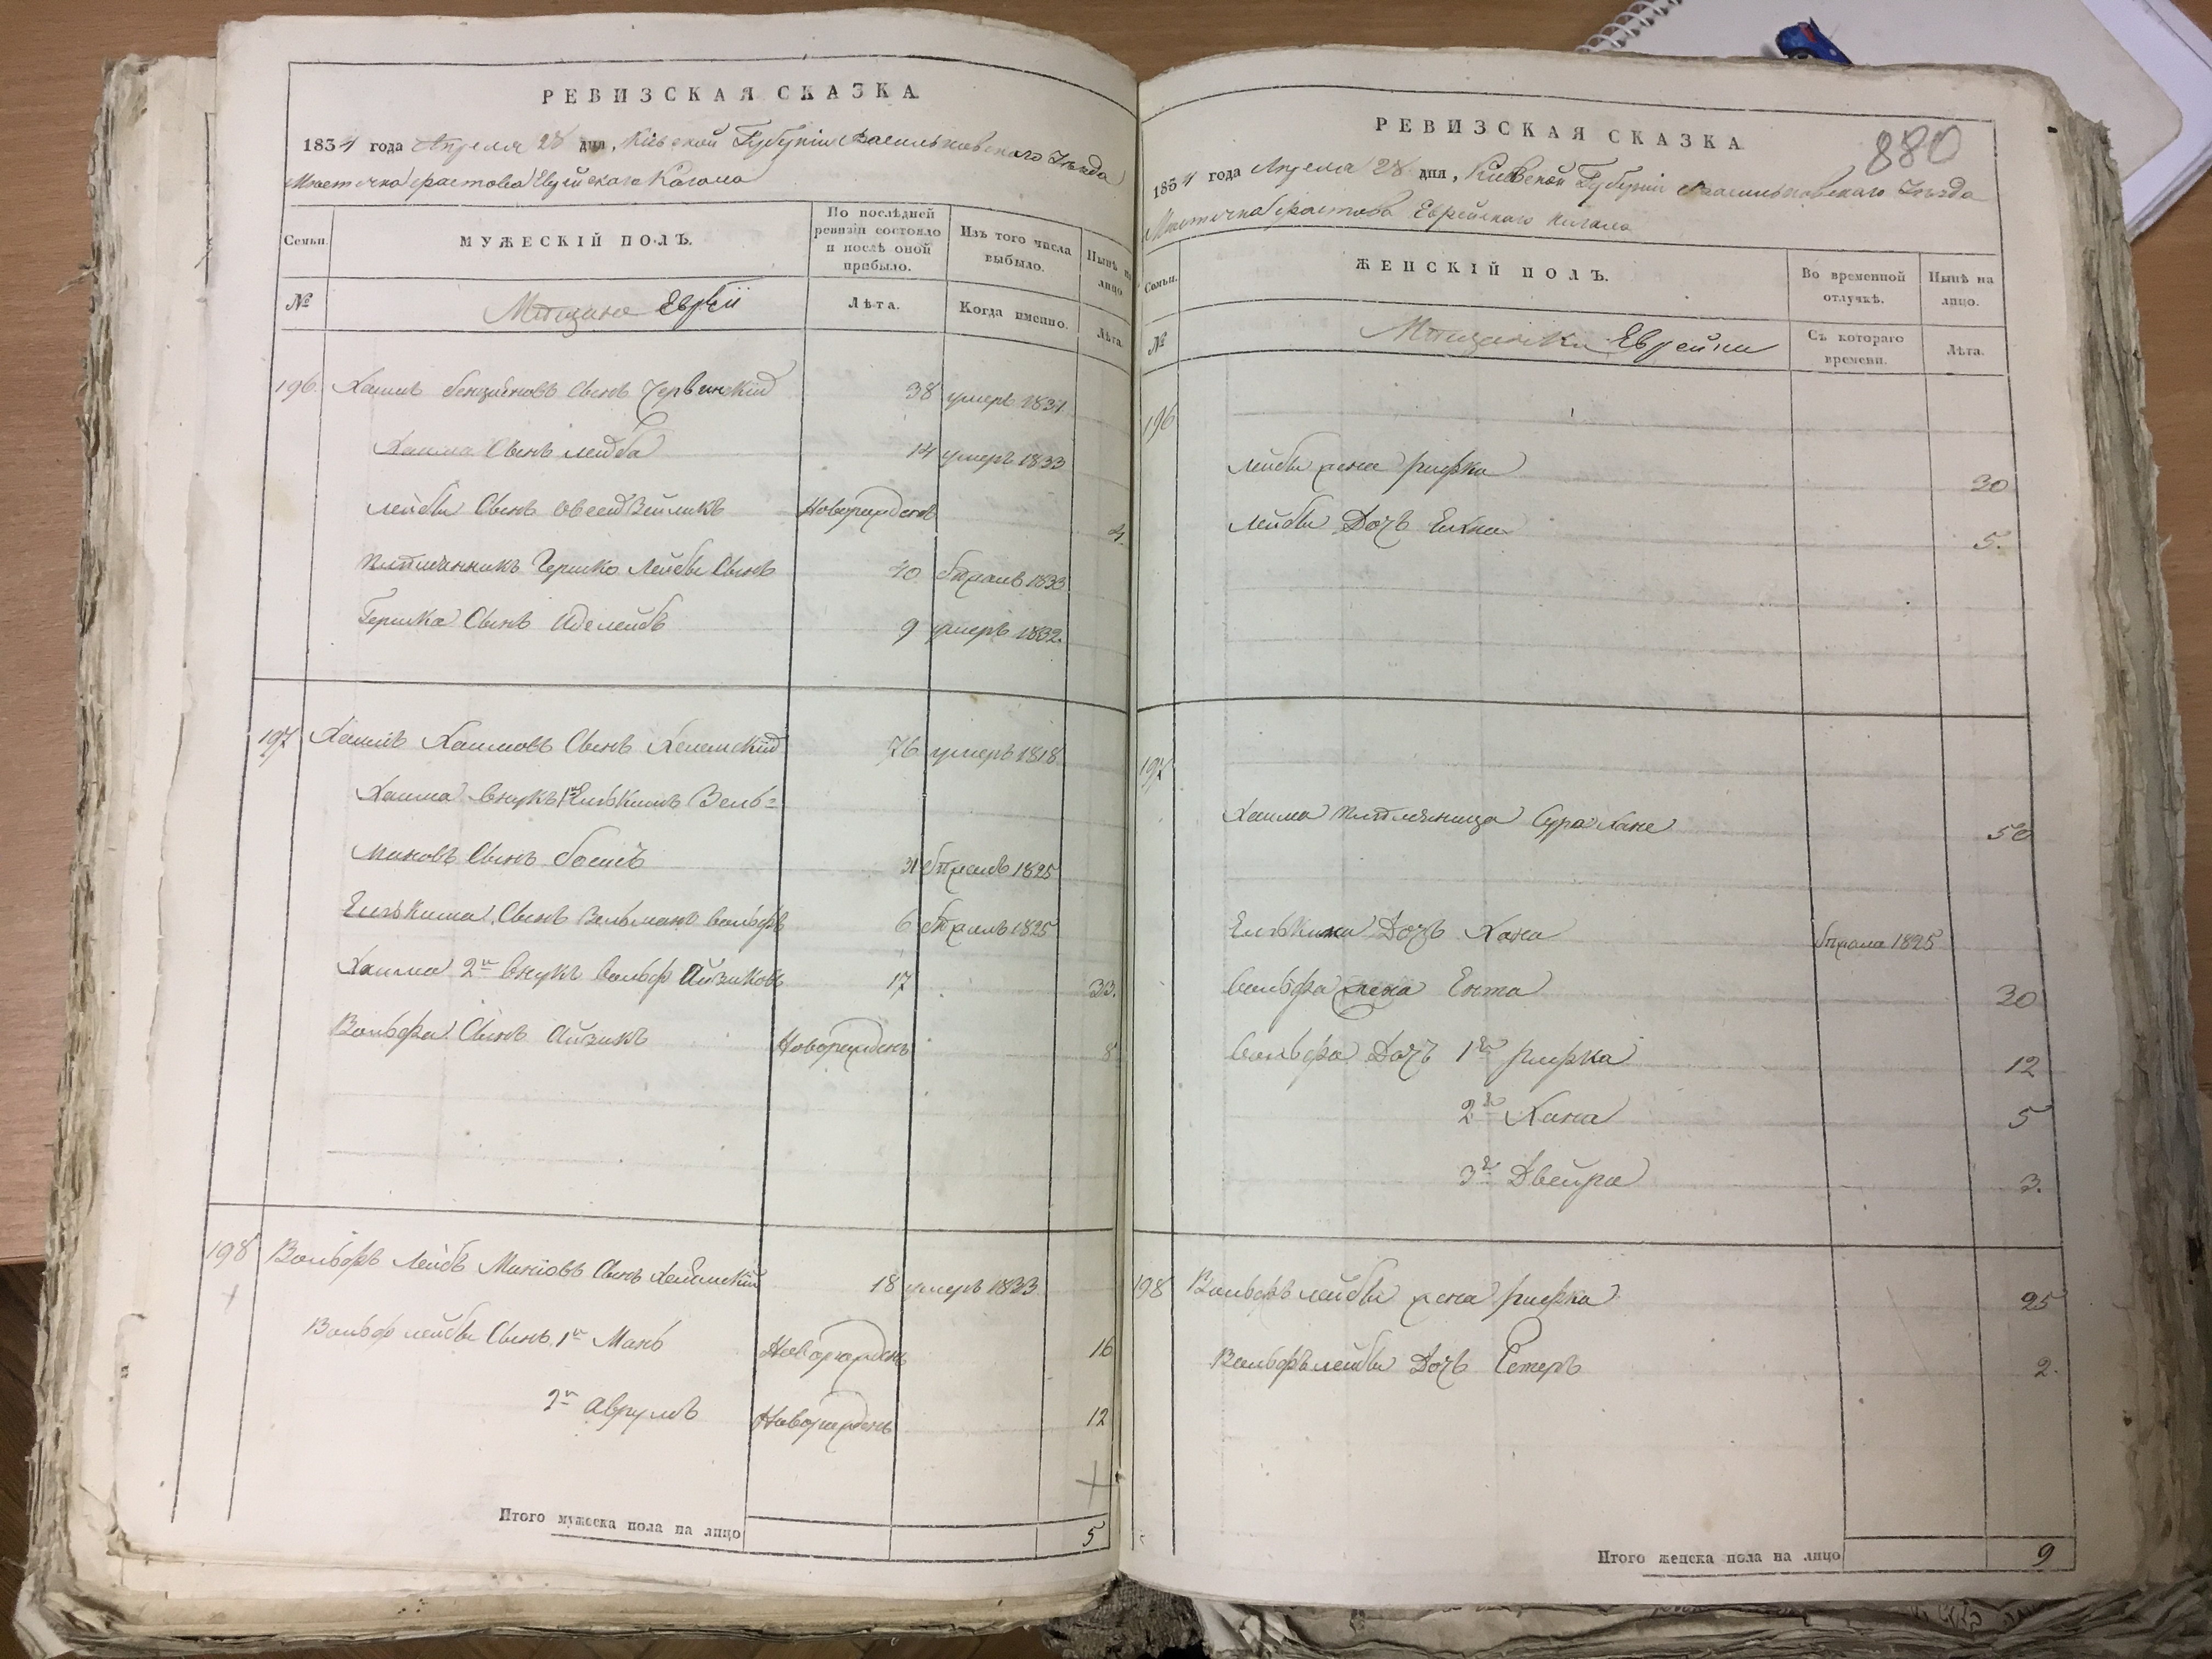 РЕВИЗСКАЯ СКАЗКА
1834 года Апреля 28 дня, Кіевской Губерніи Васильковскаго Уѣзда
Мѣстечка Фастова Еврейскаго Кагала
Семьи.
МУЖЕСКІЙ ПОЛЪ.
По послѣдней ревизіи состояло и послѣ оной прибыло.
Изъ того числа выбыло.
Нынѣ на лицо
№
Мѣщане Евреи
Лѣта.
Когда именно.
Лѣта.
196. Хаимъ Сынъ Червинскій 38 умеръ 1831
Хаима Сынъ Лейба 14 умеръ 1833
Лейбы Сынъ Овсей Зейликъ Новорожденъ 4.
Племянникъ Гершко Лейбы Сынъ 40 бѣжалъ 1833
Гершка Сынъ Иделейбъ 9 умеръ 1832.
197 Хаимъ Хаимовъ Сынъ 76 умеръ 1818
Хаима Внукъ 1й Ельkимъ Вель=
мановъ Сынъ 31 бѣжалъ 1825
Елькима Сынъ Вельманъ Вольфъ 6 бѣжалъ 1825
Хаима 2й Внукъ Вольф Айзиковъ 17 33.
Вольфа Сынъ Айзикъ Новорожденъ 8
198 Вольфъ Лейбъ Маніовъ Сынъ 18 умеръ 1833
Вольф Лейбы Сынъ 1й Мань Новорожденъ 16
2й Аврумъ Новорожденъ 12
Итого мужеска пола на лицо 5
РЕВИЗСКАЯ СКАЗКА
880
1834 года Апреля 28 дня, Кіевской Губерніи Васильковскаго Уѣзда
Мѣстечка Фастова Еврейскаго Кагала
Семьи.
ЖЕНСКІЙ ПОЛЪ.
Во временной отлучкѣ.
Нынѣ на лицо.
№
Мѣщанки Еврейки
Съ котораго времени.
Лѣта.
196
Лейбы жена Рифка 30
Лейбы Дочь Елька 5.
197
Хаима племянница Сура Хане 50
Елькима Дочь Хана бѣжала 1825
Вольфа жена Ента 30
Вольфа Дочь 1я Рифка 12
2я Хана 5
3я Двейра 3.
198 Вольфъ Лейбы жена Рифка 25
Вольфъ Лейбы Дочь Естеръ 2.
Итого женска пола на лицо 9